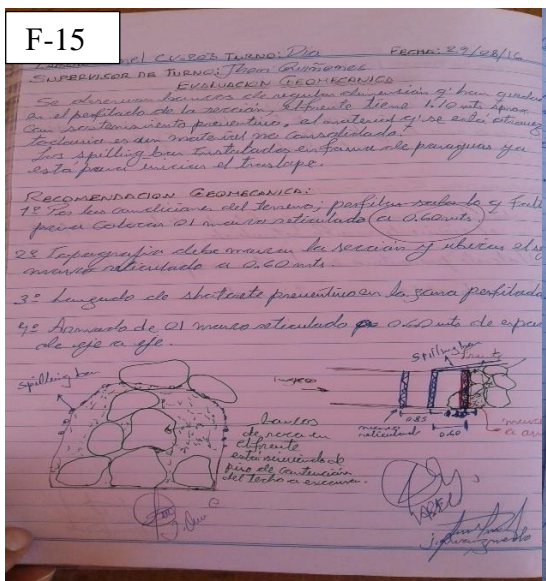 F-15
Túnel CV-203 TURNO: Dia FECHA: 29/08/16
SUPERVISOR DE TURNO: Jhon Quiñonez
EVALUACION GEOMECANICA
Se observan bancos de regular dimensión q' han quedado
en el perfilado de la sección, el frente tiene 1.10 mts aprox
con sostenimiento preventivo, el material q' se está
todavia es un material no consolidado.
Los spilling bar instalados en forma de paraguas ya
está para iniciar el traslape.
RECOMENDACION GEOMECANICA:
1º Por las condiciones del terreno; perfilar
para colocar 01 marco reticulado a 0.60 mts
2º Topografia debe marcar la sección y ubicar el
marco reticulado a 0.60 mts.
3º Lanzado de shotcrete preventivo en la zona perfilada
4º Armado de 01 marco reticulado 0.60 mts de
de eje a eje.
spilling bar
bancos
de roca en
el frente
está sirviendo de
de contención
del techo a excavar.
spilling bar
frente
0.85
0.60
marco
reticulado